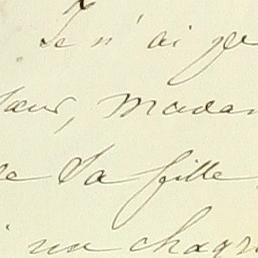 Je n'ai pe
sœur, Madam
de Sa fille
un chagr